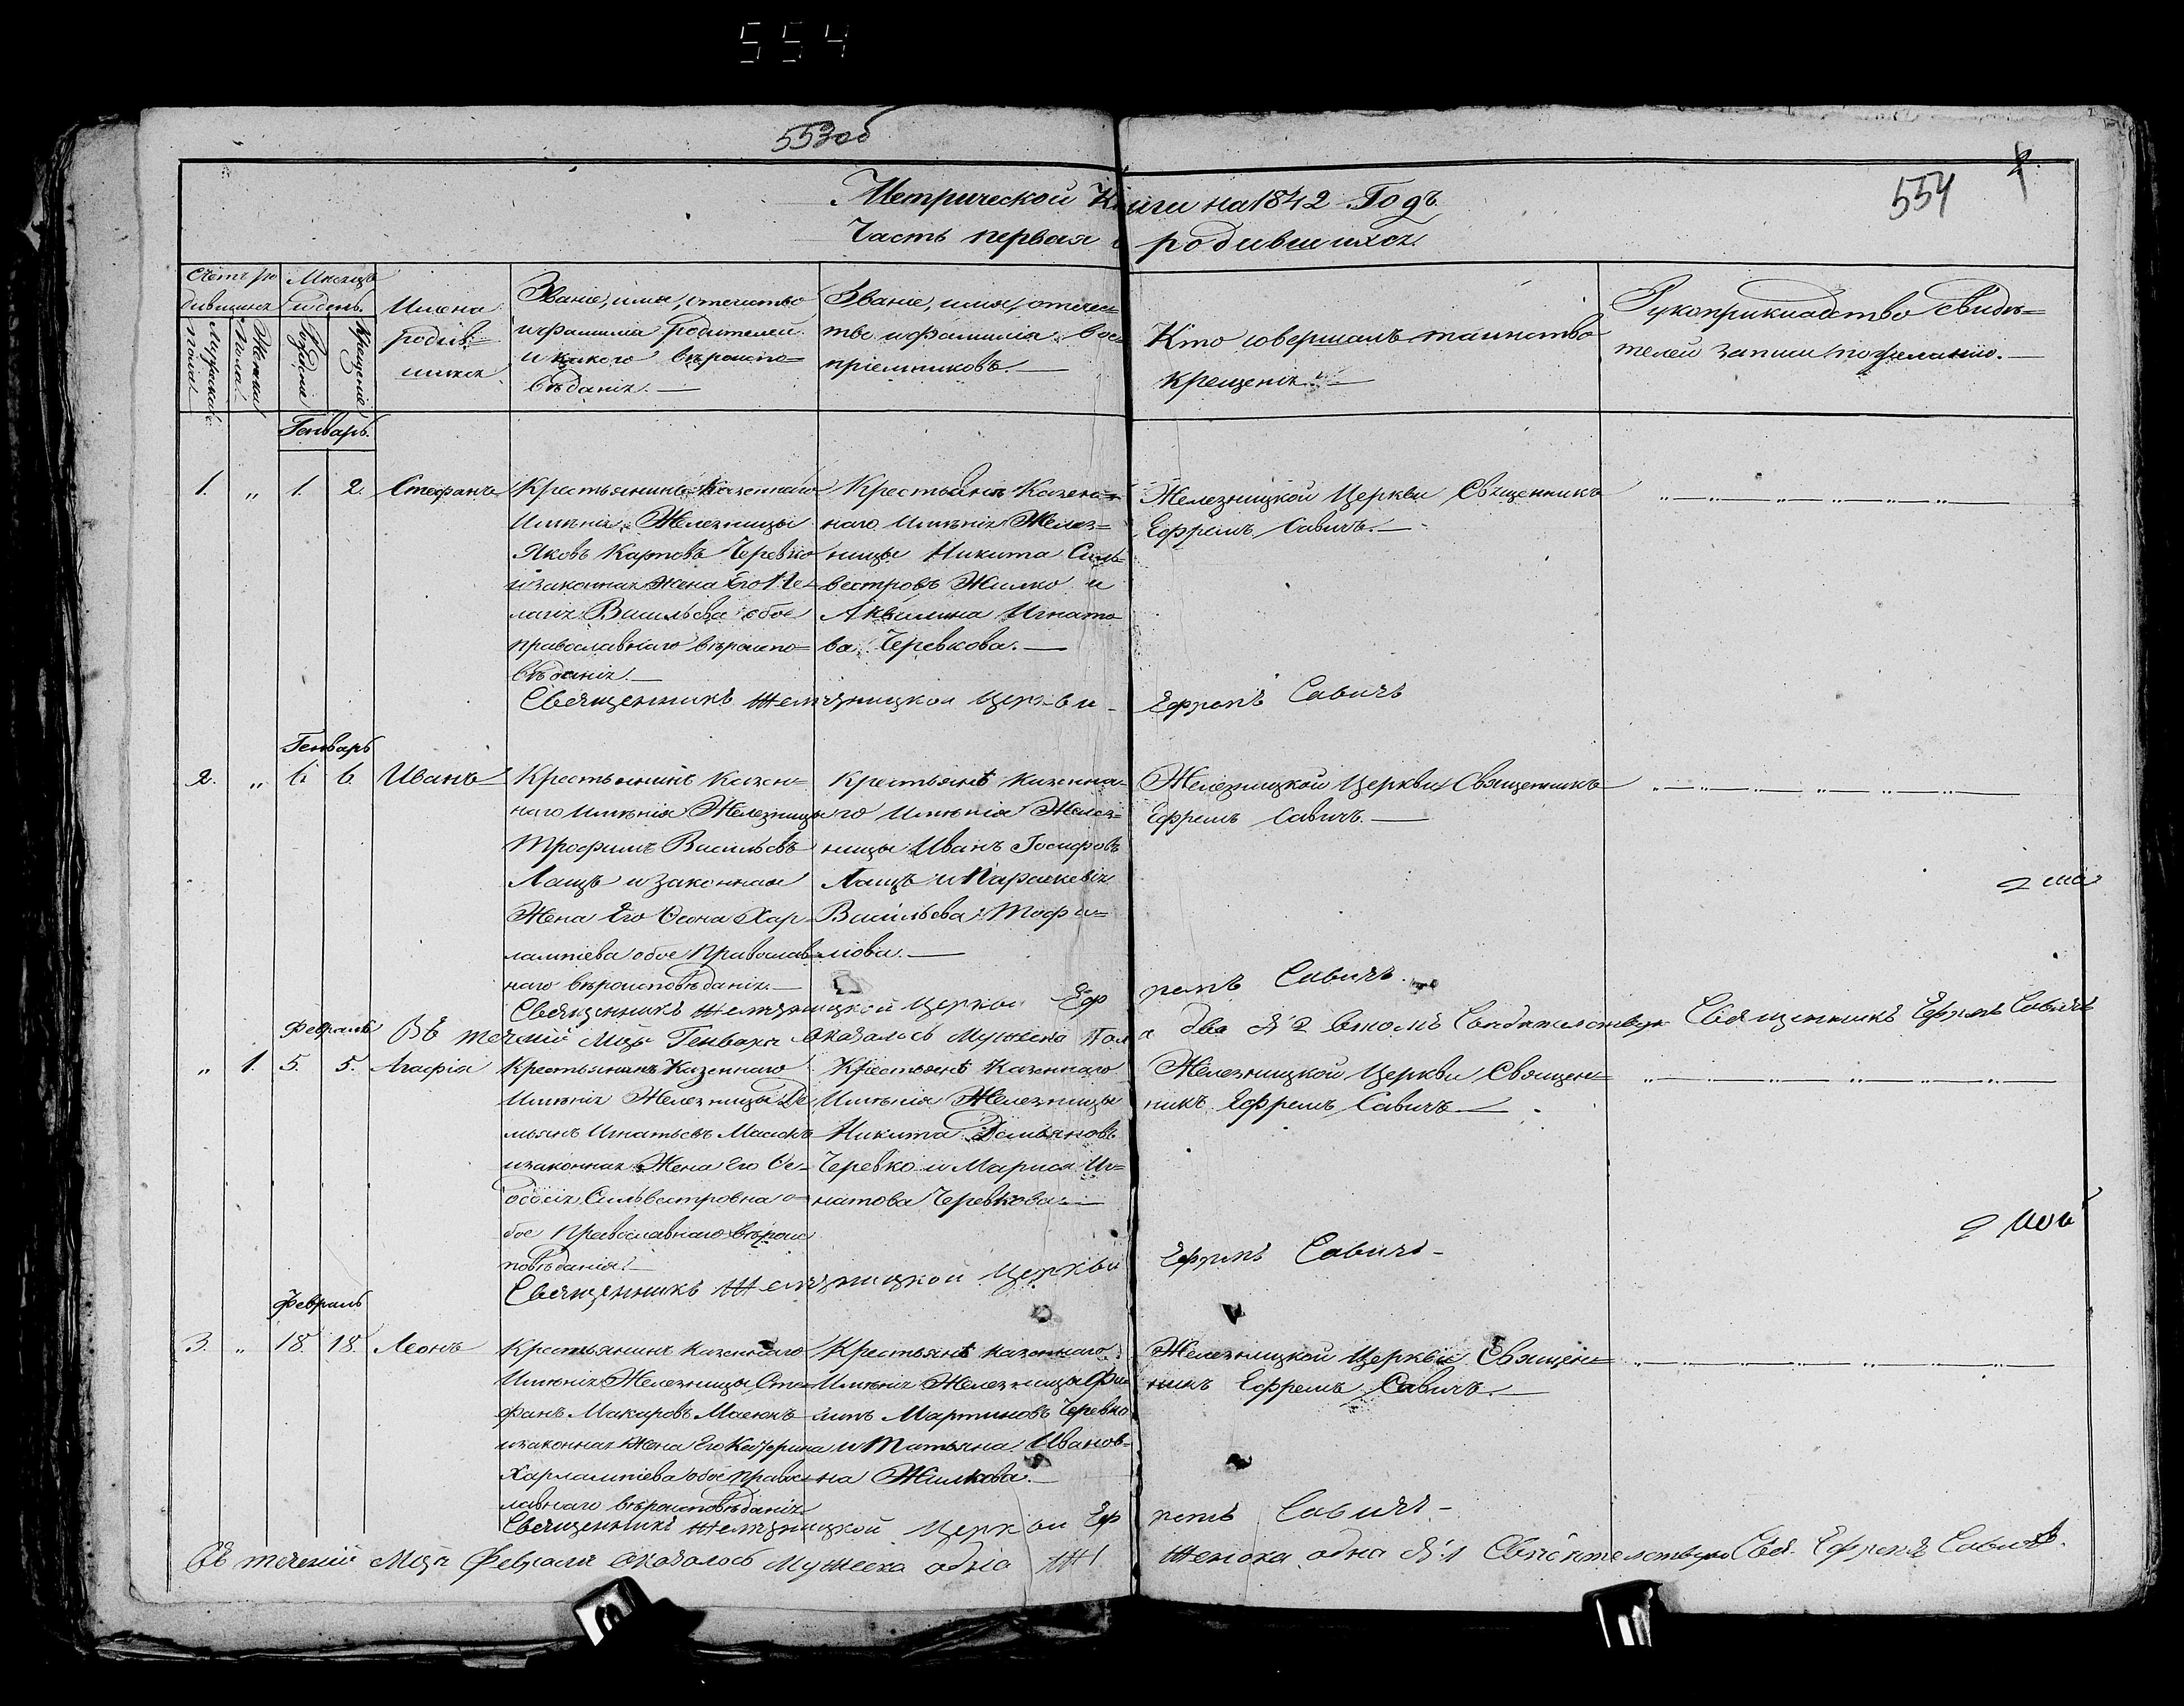 554
553об
554
2.
Метрической Книги на 1842 Годъ
Часть первая о родившихся
Счетъ ро
дившихся
Мужеска
пола
Женска
Пола
Месяцъ
и день.
Рожденія
Крещенія
Имена
родив=
шихся
Званіе, имя, отчество
и фамилія родителей
и какого вѣроиспо=
вѣданія. —
Званіе, имя, отчес=
тво и фамилія вос=
пріемниковъ. —
Кто совершалъ таинство
крещенія. —
Рукоприкладство свидѣ=
телей записи по желанію. —
Генварь.
1. „ 1. 2. Стефанъ
Крестьянинъ Казеннаго
Имѣнія Железницы
Яковъ Карповъ Черевко
и законная Жена Его Пе=
лагія Васильева обое
православнаго вѣроиспо=
вѣданія. —
Крестьяне Казен=
наго Имѣнія Желез=
ницы Никита Силь=
вестровъ Жилко и
Аквилина Игнато=
ва Черевкова. —
Железницкой Церкви Священникъ
Ефремъ Савичъ. —
Священникъ Железницкой Церкви Ефремъ Савичъ
Генварь
2. „ 6. 6. Иванъ
Крестьянинъ Казен=
наго Имѣнія Железницы
Трофимъ Васильевъ
Лащъ и законная
Жена Его Ѳеона Хар=
лампіева обое Православ=
наго вѣроисповѣданія. —
Крестьянѣ Казенна=
го Имѣнія Желез=
ницы Иванъ Іосифовъ
Лащъ и Параскевія
Васильева Трофи=
мова. —
Железницкой Церкви Священникъ
Ефремъ Савичъ. —
Священникъ Железницкой Церкви Ефремъ Савичъ
Въ теченіи Мца Генваря оказалось Мужеска Пола два № 2 въ томъ Свидѣтельствую Священникъ Ефремъ Савичъ
Февраль
„ 1. 5. 5. Агафія
Крестьянинъ Казеннаго
Имѣнія Железницы Де
мьянъ Игнатьевъ Масюкъ
и законная Жена Его Ѳе=
одосія Сильвестровна о=
бое Православнаго вѣроис
повѣданія. —
Крестьянѣ Казеннаго
Имѣнія Железницы
Никита Демьяновъ
Черевко и Марися Иг=
натова Черевкова. —
Железницкой Церкви Священ=
никъ Ефремъ Савичъ —
Священникъ Железницкой Церкви Ефремъ Савичъ —
Февраль
3. „ 18. 18. Леонъ
Крестьянинъ Казеннаго
Имѣнія Железницы Сте=
фанъ Макаровъ Масюкъ
и законная Жена Его Катерина
Харлампіева обое правос=
лавнаго вѣроисповѣданія
Крестьянѣ казеннаго
Имѣнія Железницы Фи=
липъ Мартиновъ Черевко
и Татьяна Иванов=
на Жилкова. —
Железницкой Церкви Священ=
никъ Ефремъ Савичъ. —
Священникъ Железницкой Церкви Ефремъ Савичъ —
Въ теченіи Мца Февраля оказалось Мужеска одна Женска одна № 1 Свидѣтельствую Свя. Ефремъ Савичъ.